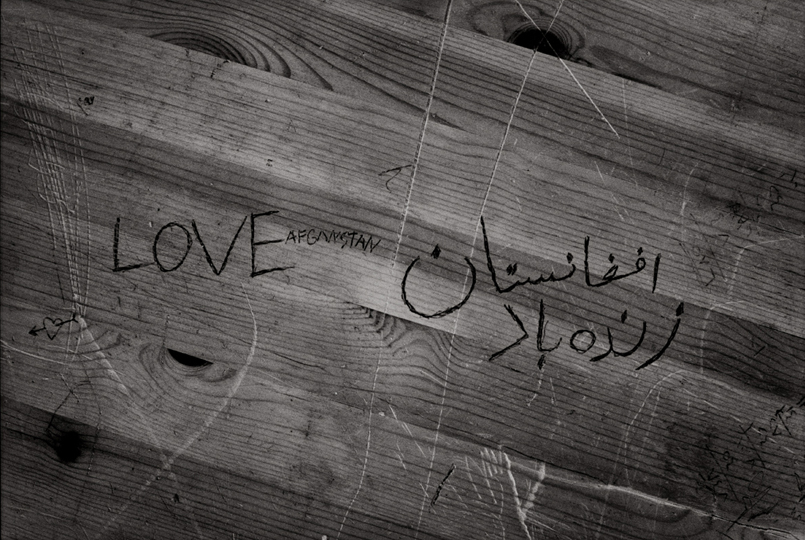 LOVE AFGANISTAN
افغانستان
زنده باد